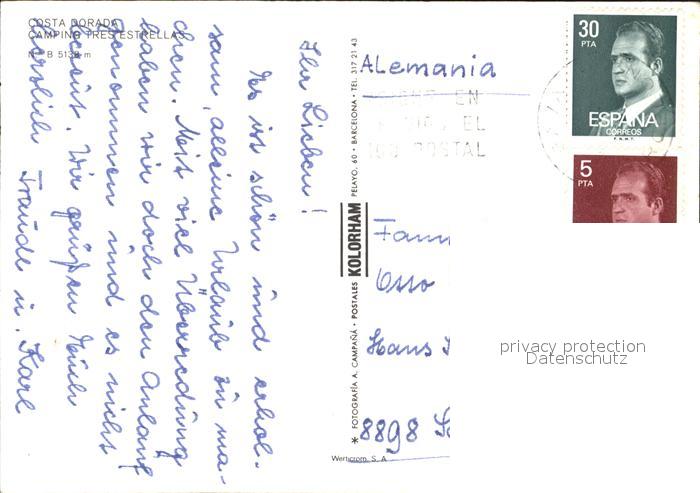 COSTA DORADA
CAMPING TRES ESTRELLAS
N.º B 5138 m
Ihr Lieben!
Es ist schön und erhol-
sam, alleine Urlaub zu ma-
chen. Mit viel Überredung
haben wir doch den Anfang
genommen und es nicht
bereut. Wir grüßen Euch
herzlich Traude u. Karl
* FOTOGRAFIA A. CAMPAÑÁ • POSTALES KOLORHAM PELAYO, 60 • BARCELONA • TEL. 317 21 43
Alemania
EN
EL
POSTAL
30
PTA
ESPAÑA
CORREOS
F.N.M.T.
5
PTA
Fam
Otto
Hans
8898
Werticrom, S. A.
privacy protection
Datenschutz